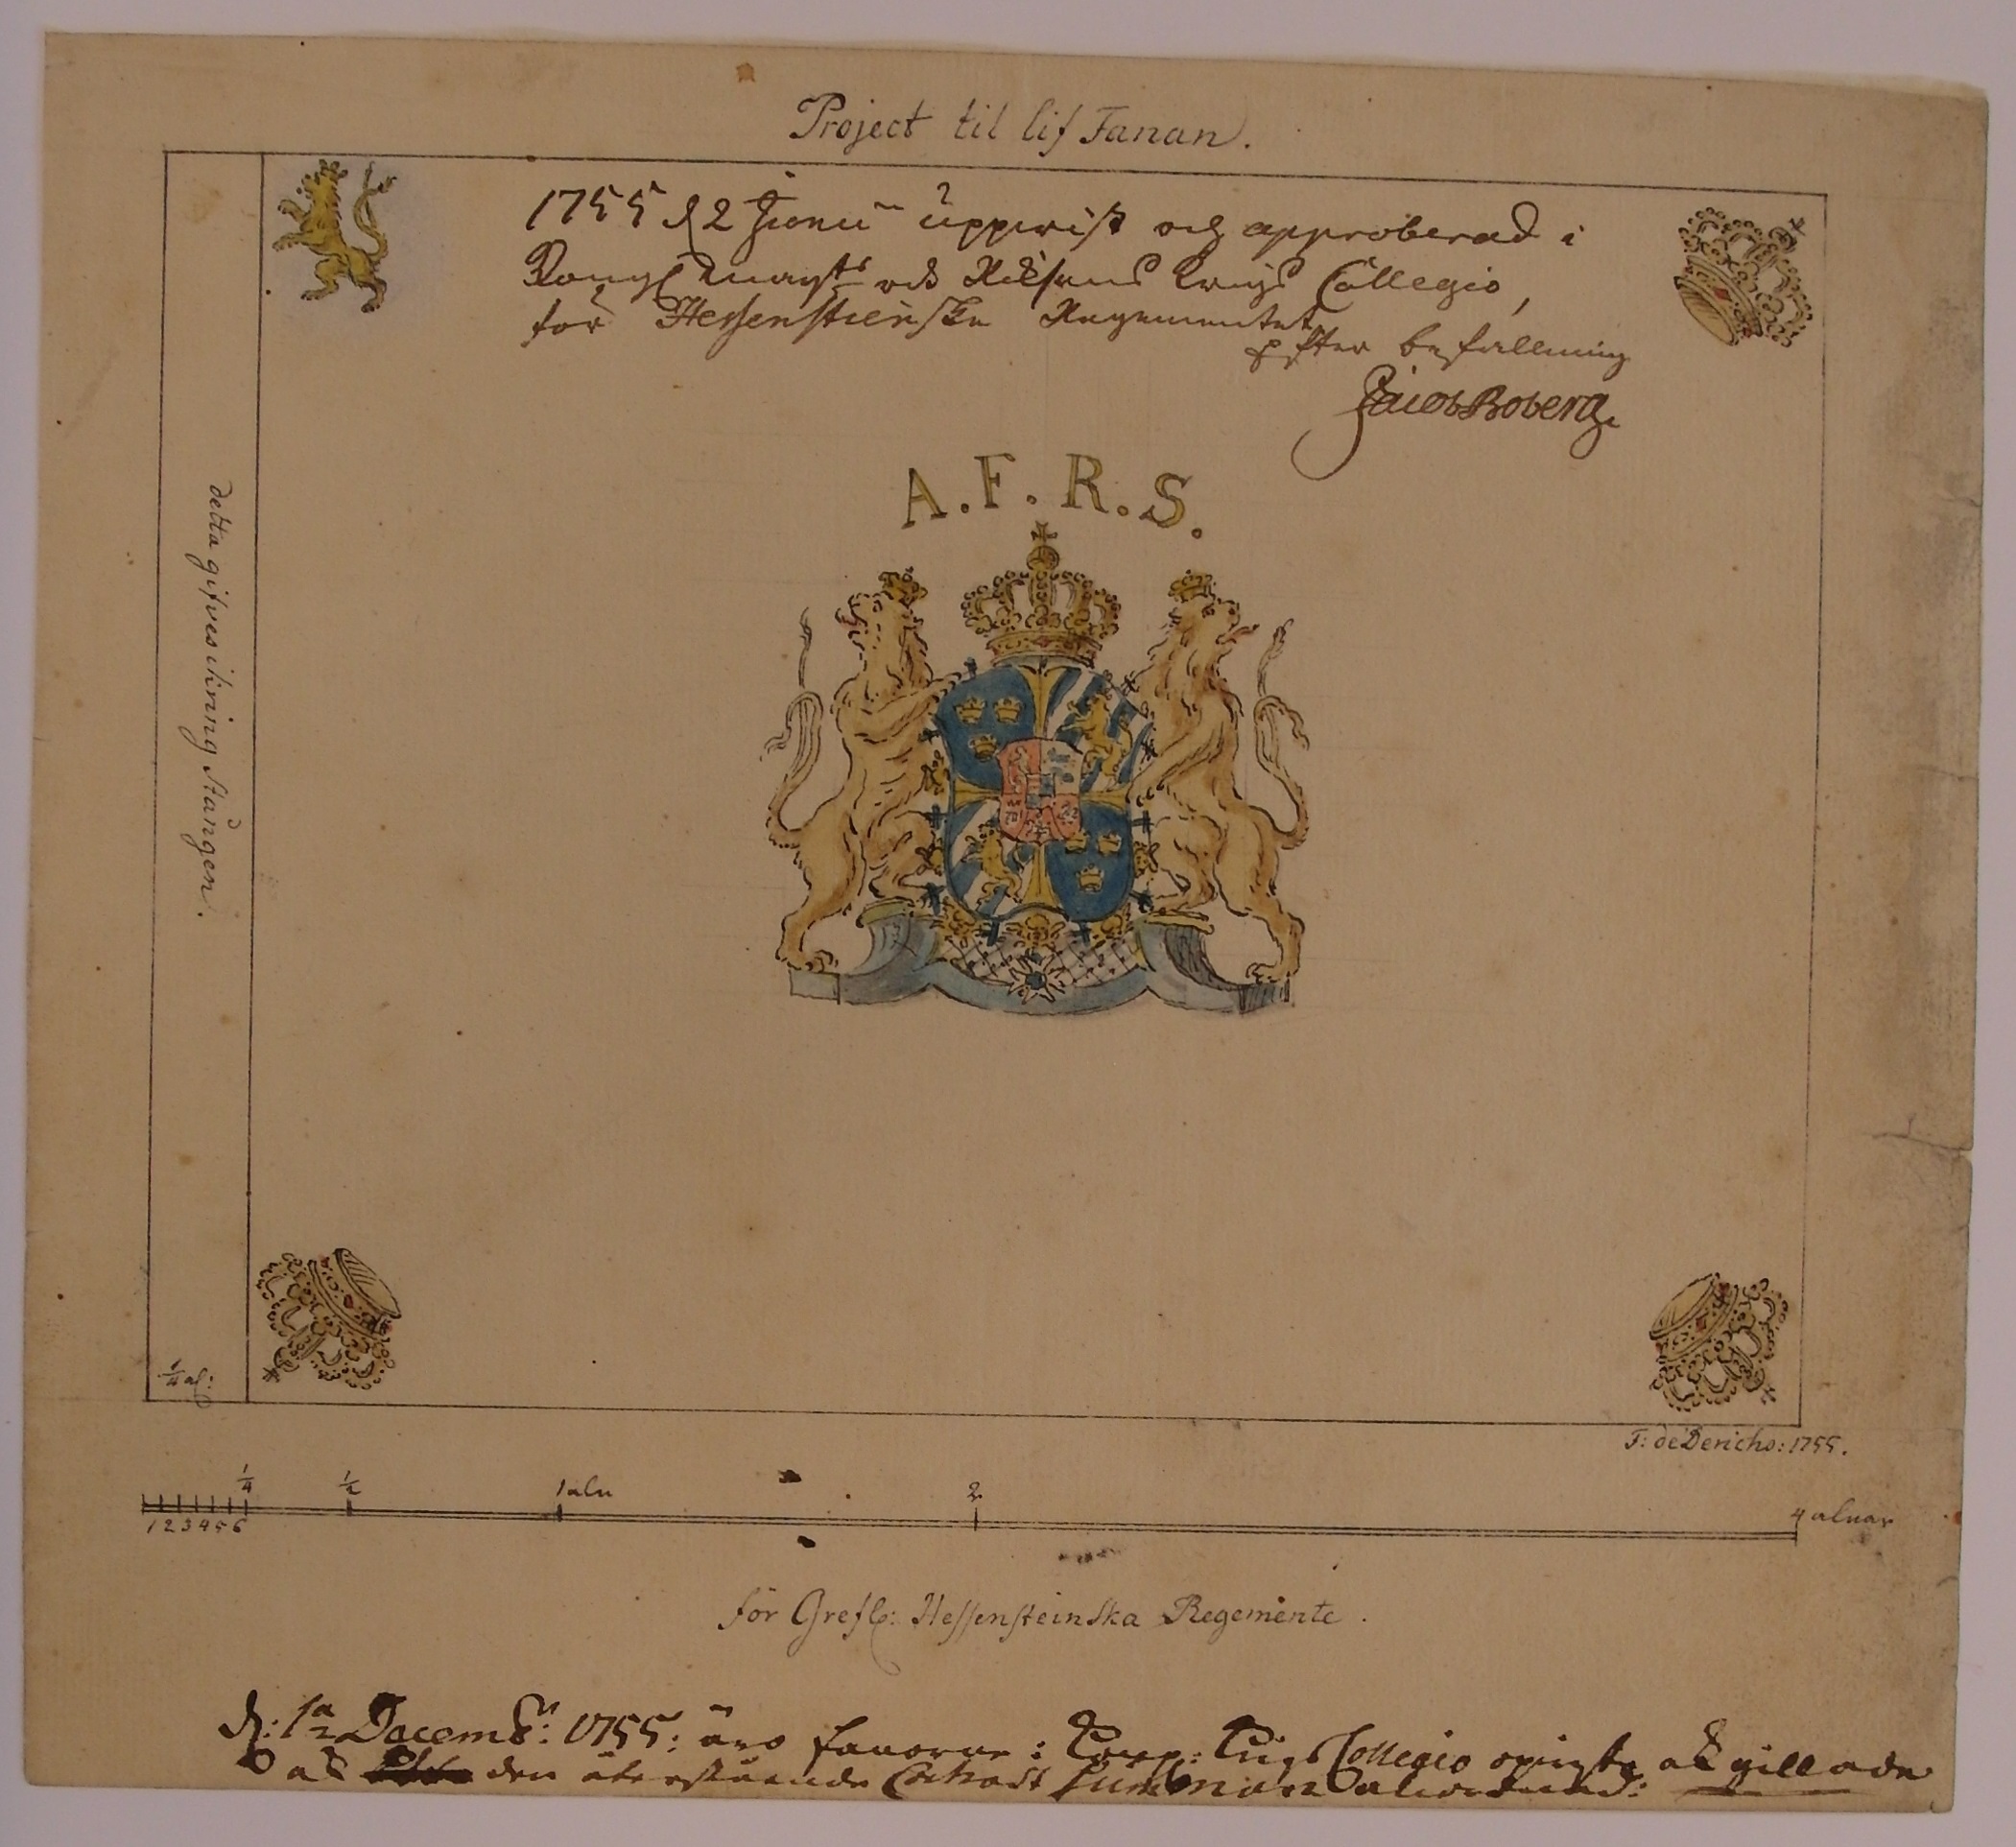 Project til lif Fanan.
1755 d 2 Junii uppwist och approberad i
Kongl Mayts och Riksens Krigs Collegio,
för Hessensteinske Regementet
Efter befallning
Jacob Boberg.
A.F.R.S.
detta gifves ikring stången.
1/4 al:
F: de Derichs: 1755.
1/4 1/2 1 aln 2 4 alnar
1 2 3 4 5 6
för Grefl: Hessensteinska Regemente.
d: 1a Decembr: 1755: äro fanorne i Kongl: Krigs Collegio opwiste ock gillade
ock den återstående